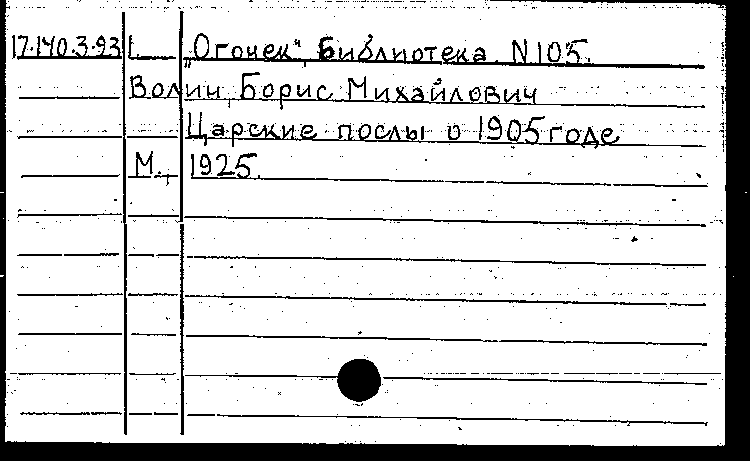 17.140.3.93 L „Огочек“, Библиотека N105.
Волин, Борис Михайлович
Царские послы о 1905 годе
М., 1925.